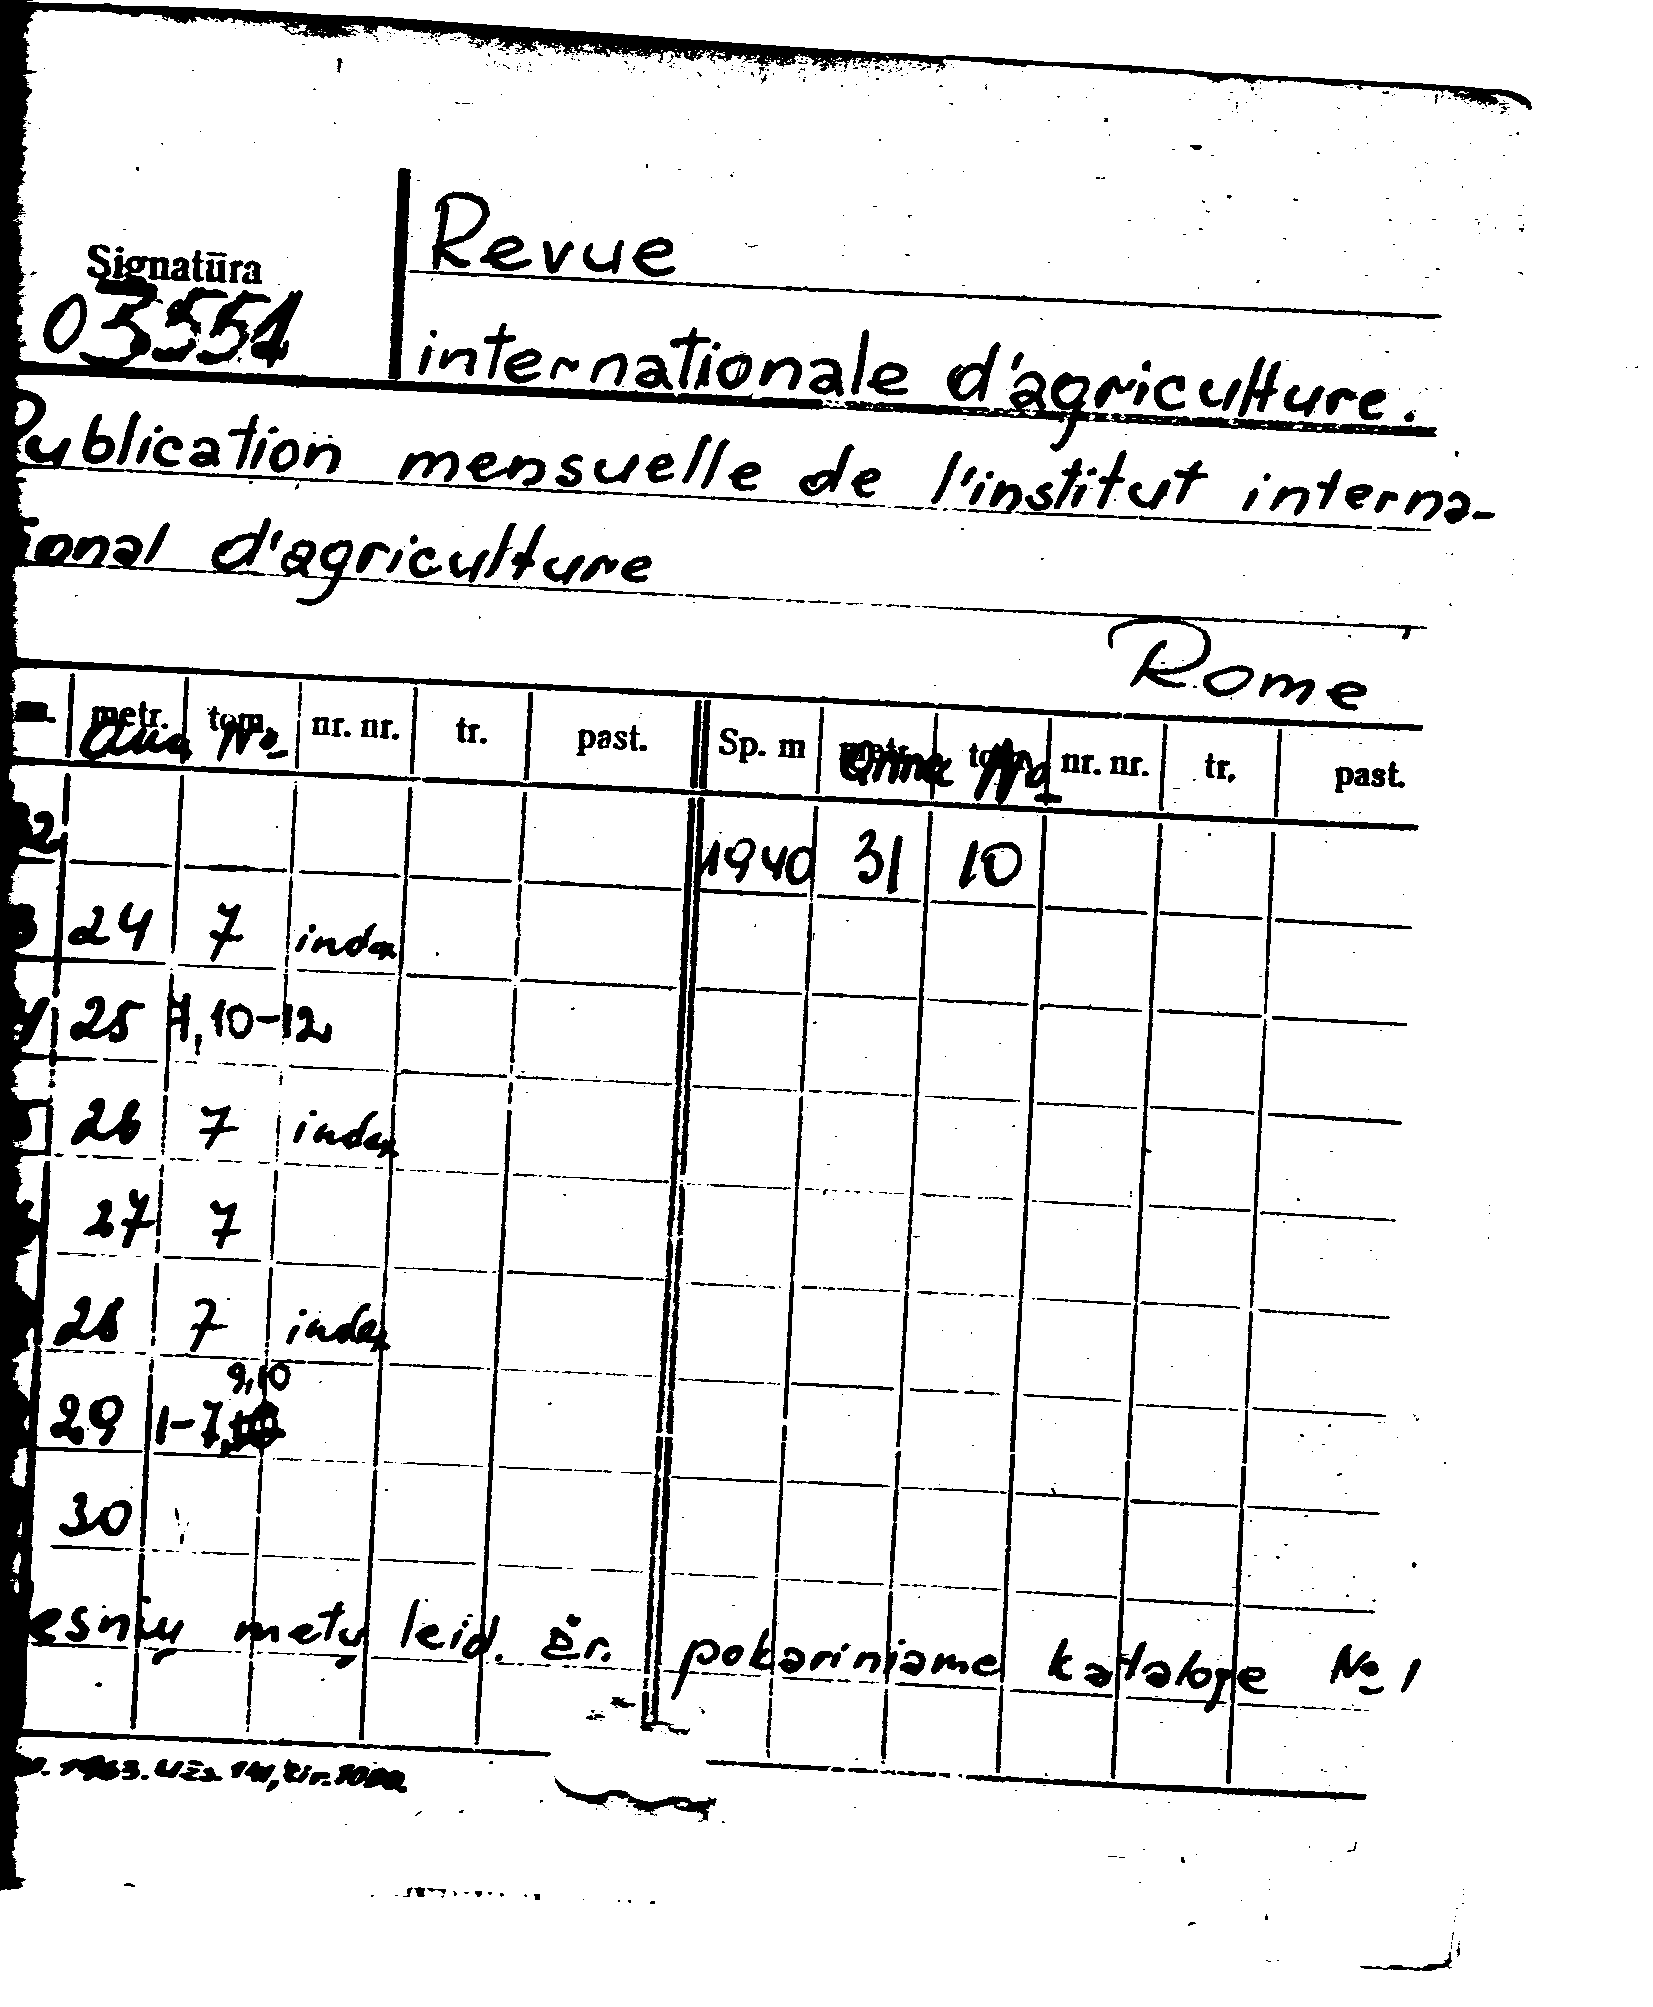 Revue
Signatūra
03551
internationale d'agriculture.
Publication mensuelle de l'institut interna-
ional d'agriculture
Rome
metr. tom. nr. nr. tr. past. Sp. m metr. tom. nr. nr. tr. past.
No No
2 1940 31 10
3 24 7 index
4 25 10-12
5 26 7 index
27 7
28 7 index
9,10
29 1-7,
30
esnių metų leid. žr. pokariniame kataloge No 1
1963. Užs. tir. 1000